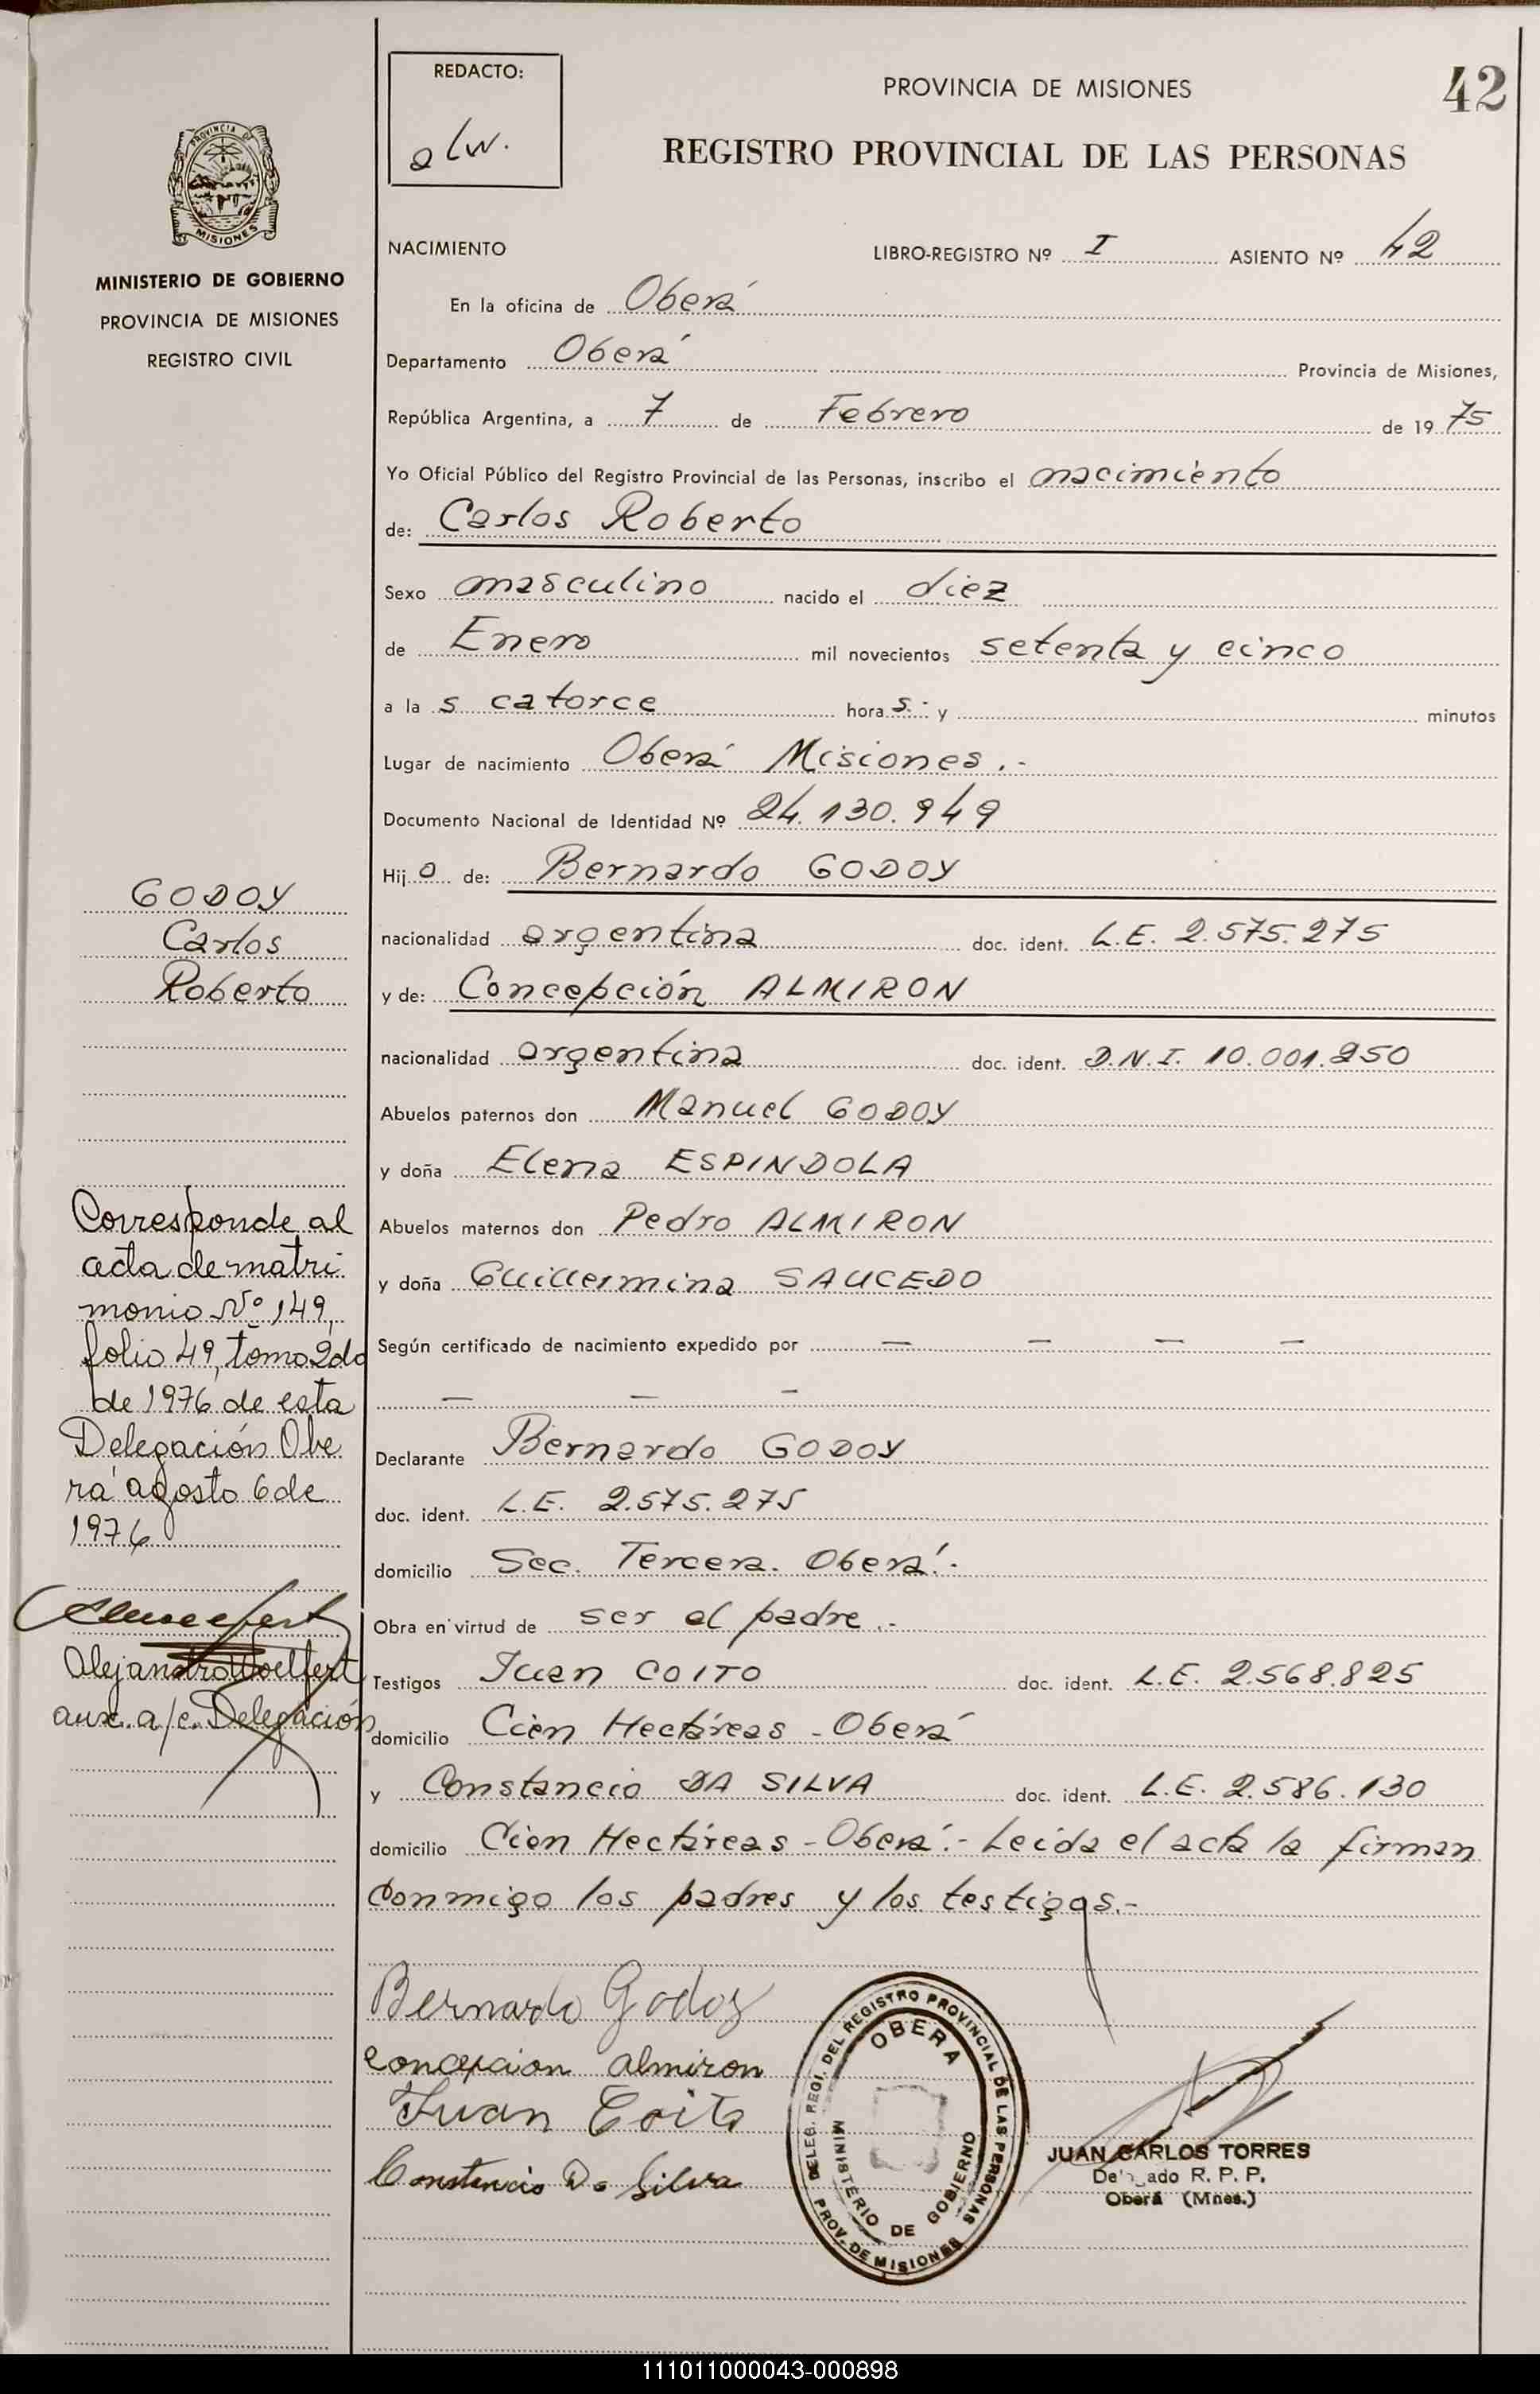 REDACTO:
alw.
PROVINCIA DE MISIONES
42
REGISTRO PROVINCIAL DE LAS PERSONAS
PROVINCIA DE
MISIONES
MINISTERIO DE GOBIERNO
PROVINCIA DE MISIONES
REGISTRO CIVIL
NACIMIENTO LIBRO-REGISTRO Nº I ASIENTO Nº 42
En la oficina de Oberá
Departamento Oberá Provincia de Misiones,
República Argentina, a 7 de Febrero de 1975
Yo Oficial Público del Registro Provincial de las Personas, inscribo el nacimiento
de: Carlos Roberto
Sexo masculino nacido el diez
de Enero mil novecientos setenta y cinco
a las catorce horas.- y minutos
Lugar de nacimiento Oberá Misiones.-
Documento Nacional de Identidad Nº 24.130.949
Hijo de: Bernardo GODOY
nacionalidad argentina doc. ident. L.E. 2.575.275
y de: Concepción ALMIRON
nacionalidad argentina doc. ident. D.N.I. 10.001.250
Abuelos paternos don Manuel GODOY
y doña Elena ESPINDOLA
Abuelos maternos don Pedro ALMIRON
y doña Guillermina SAUCEDO
Según certificado de nacimiento expedido por — — — —
— — —
Declarante Bernardo GODOY
doc. ident. L.E. 2.575.275
domicilio Sec. Tercera. Oberá.-
Obra en virtud de ser el padre.-
Testigos Juan COITO doc. ident. L.E. 2.568.825
domicilio Cien Hectáreas - Oberá
y Constancio DA SILVA doc. ident. L.E. 2.586.130
domicilio Cien Hectáreas - Oberá.- Leída el acta la firman
conmigo los padres y los testigos.-
GODOY
Carlos
Roberto
Corresponde al
acta de matri
monio Nº 149,
folio 49, tomo 2do
de 1976 de esta
Delegación Obe
rá agosto 6 de
1976
Alejandro Woelfert
aux. a/c. Delegación
Bernardo Godoy
concepcion almiron
Juan Coito
Constancio Da Silva
DELEG. REGI. DEL REGISTRO PROVINCIAL DE LAS PERSONAS
OBERA
MINISTERIO DE GOBIERNO
PROV. DE MISIONES
JUAN CARLOS TORRES
R. P. P.
Oberá (Mnes.)
111011000043-000898